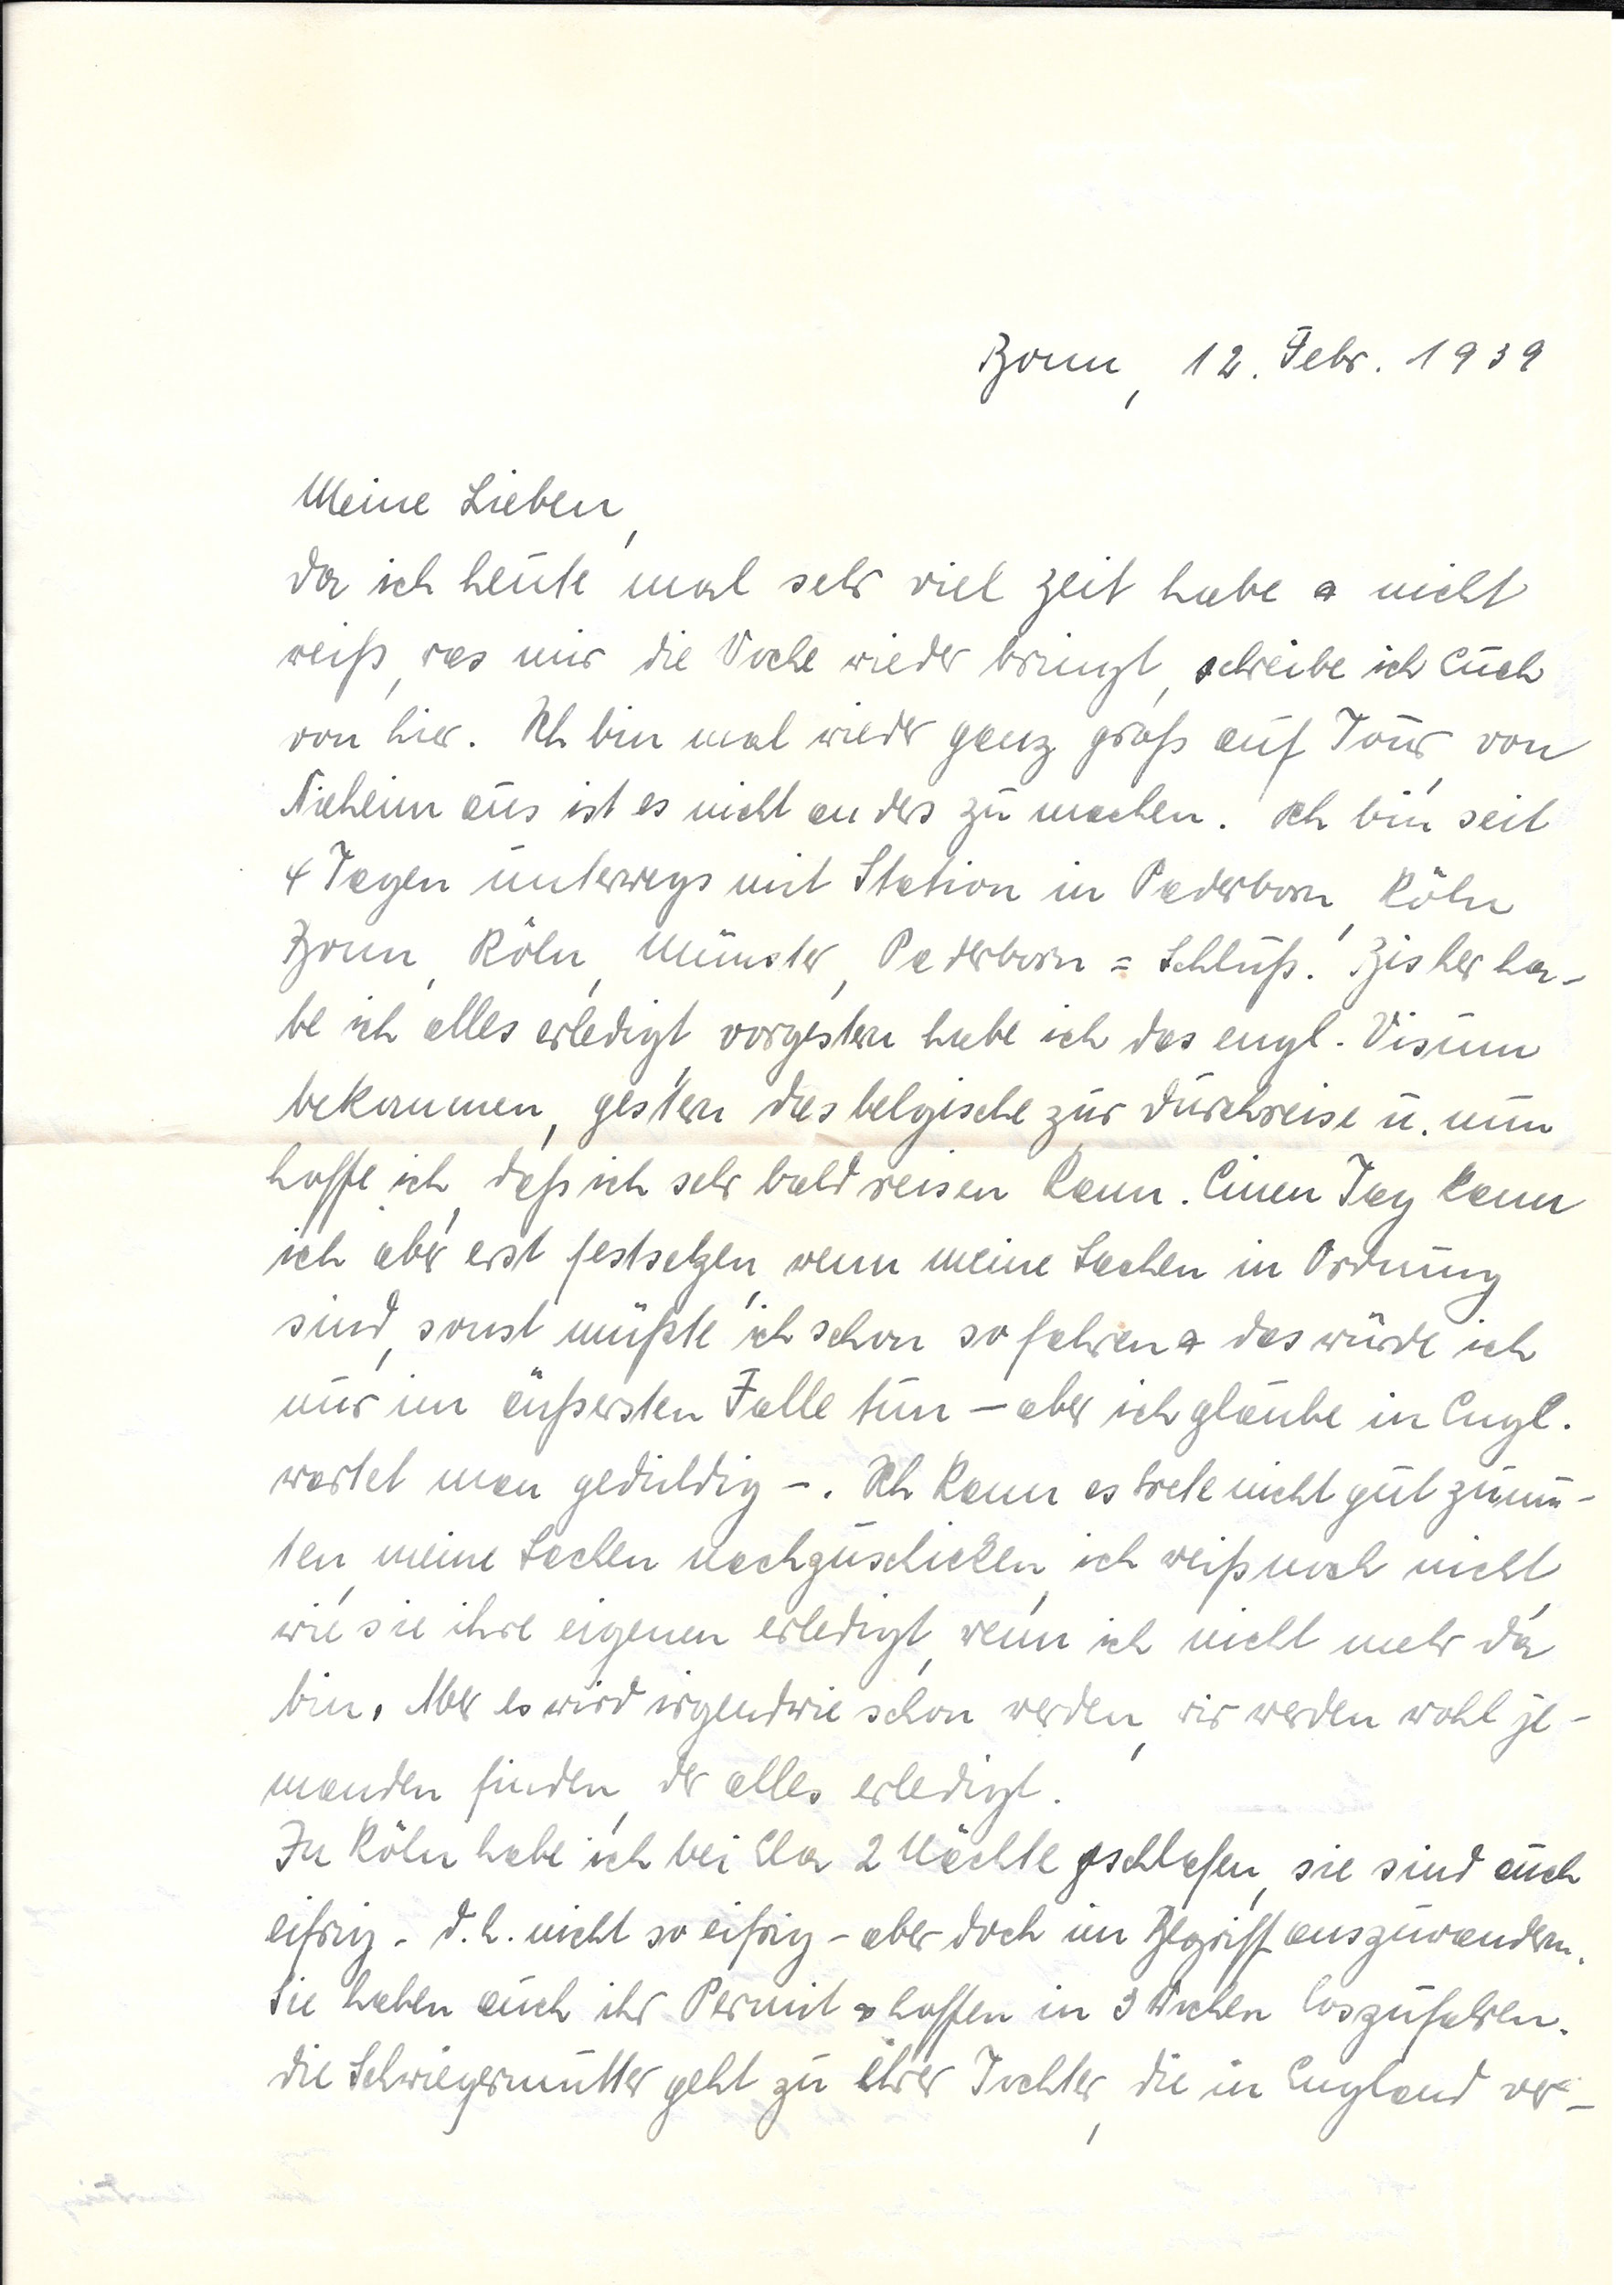 Bonn, 12. Febr. 1939
Meine Lieben,
da ich heute mal sehr viel Zeit habe & nicht
weiß, was mir die Woche wieder bringt, schreibe ich Euch
von hier. Ich bin mal wieder ganz groß auf Tour, von
Nieheim aus ist es nicht anders zu machen. Ich bin seit
4 Tagen unterwegs mit Station in Paderborn, Köln
Bonn, Köln, Münster, Paderborn = Schluß. Bisher ha-
be ich alles erledigt, vorgestern habe ich das engl. Visum
bekommen, gestern das belgische zur Durchreise u. nun
hoffe ich, daß ich sehr bald reisen kann. Einen Tag kann
ich aber erst festsetzen, wenn meine Sachen in Ordnung
sind, sonst müßte ich schon so fahren & das würde ich
nur im äußersten Falle tun – aber ich glaube in Engl.
wartet man geduldig –. Ich kann es Grete nicht gut zumu-
ten, meine Sachen nachzuschicken, ich weiß noch nicht,
wie sie ihre eigenen erledigt, wenn ich nicht mehr da
bin. Aber es wird irgendwie schon werden, wir werden wohl je-
manden finden, der alles erledigt.
In Köln habe ich bei Ela 2 Nächte gschlafen, sie sind auch
eifrig – d.h. nicht so eifrig – aber doch im Begriff auszuwandern.
Sie haben auch ihr Permit & hoffen in 3 Wochen loszufahren.
Die Schwiegermutter geht zu ihrer Tochter, die in England ver-